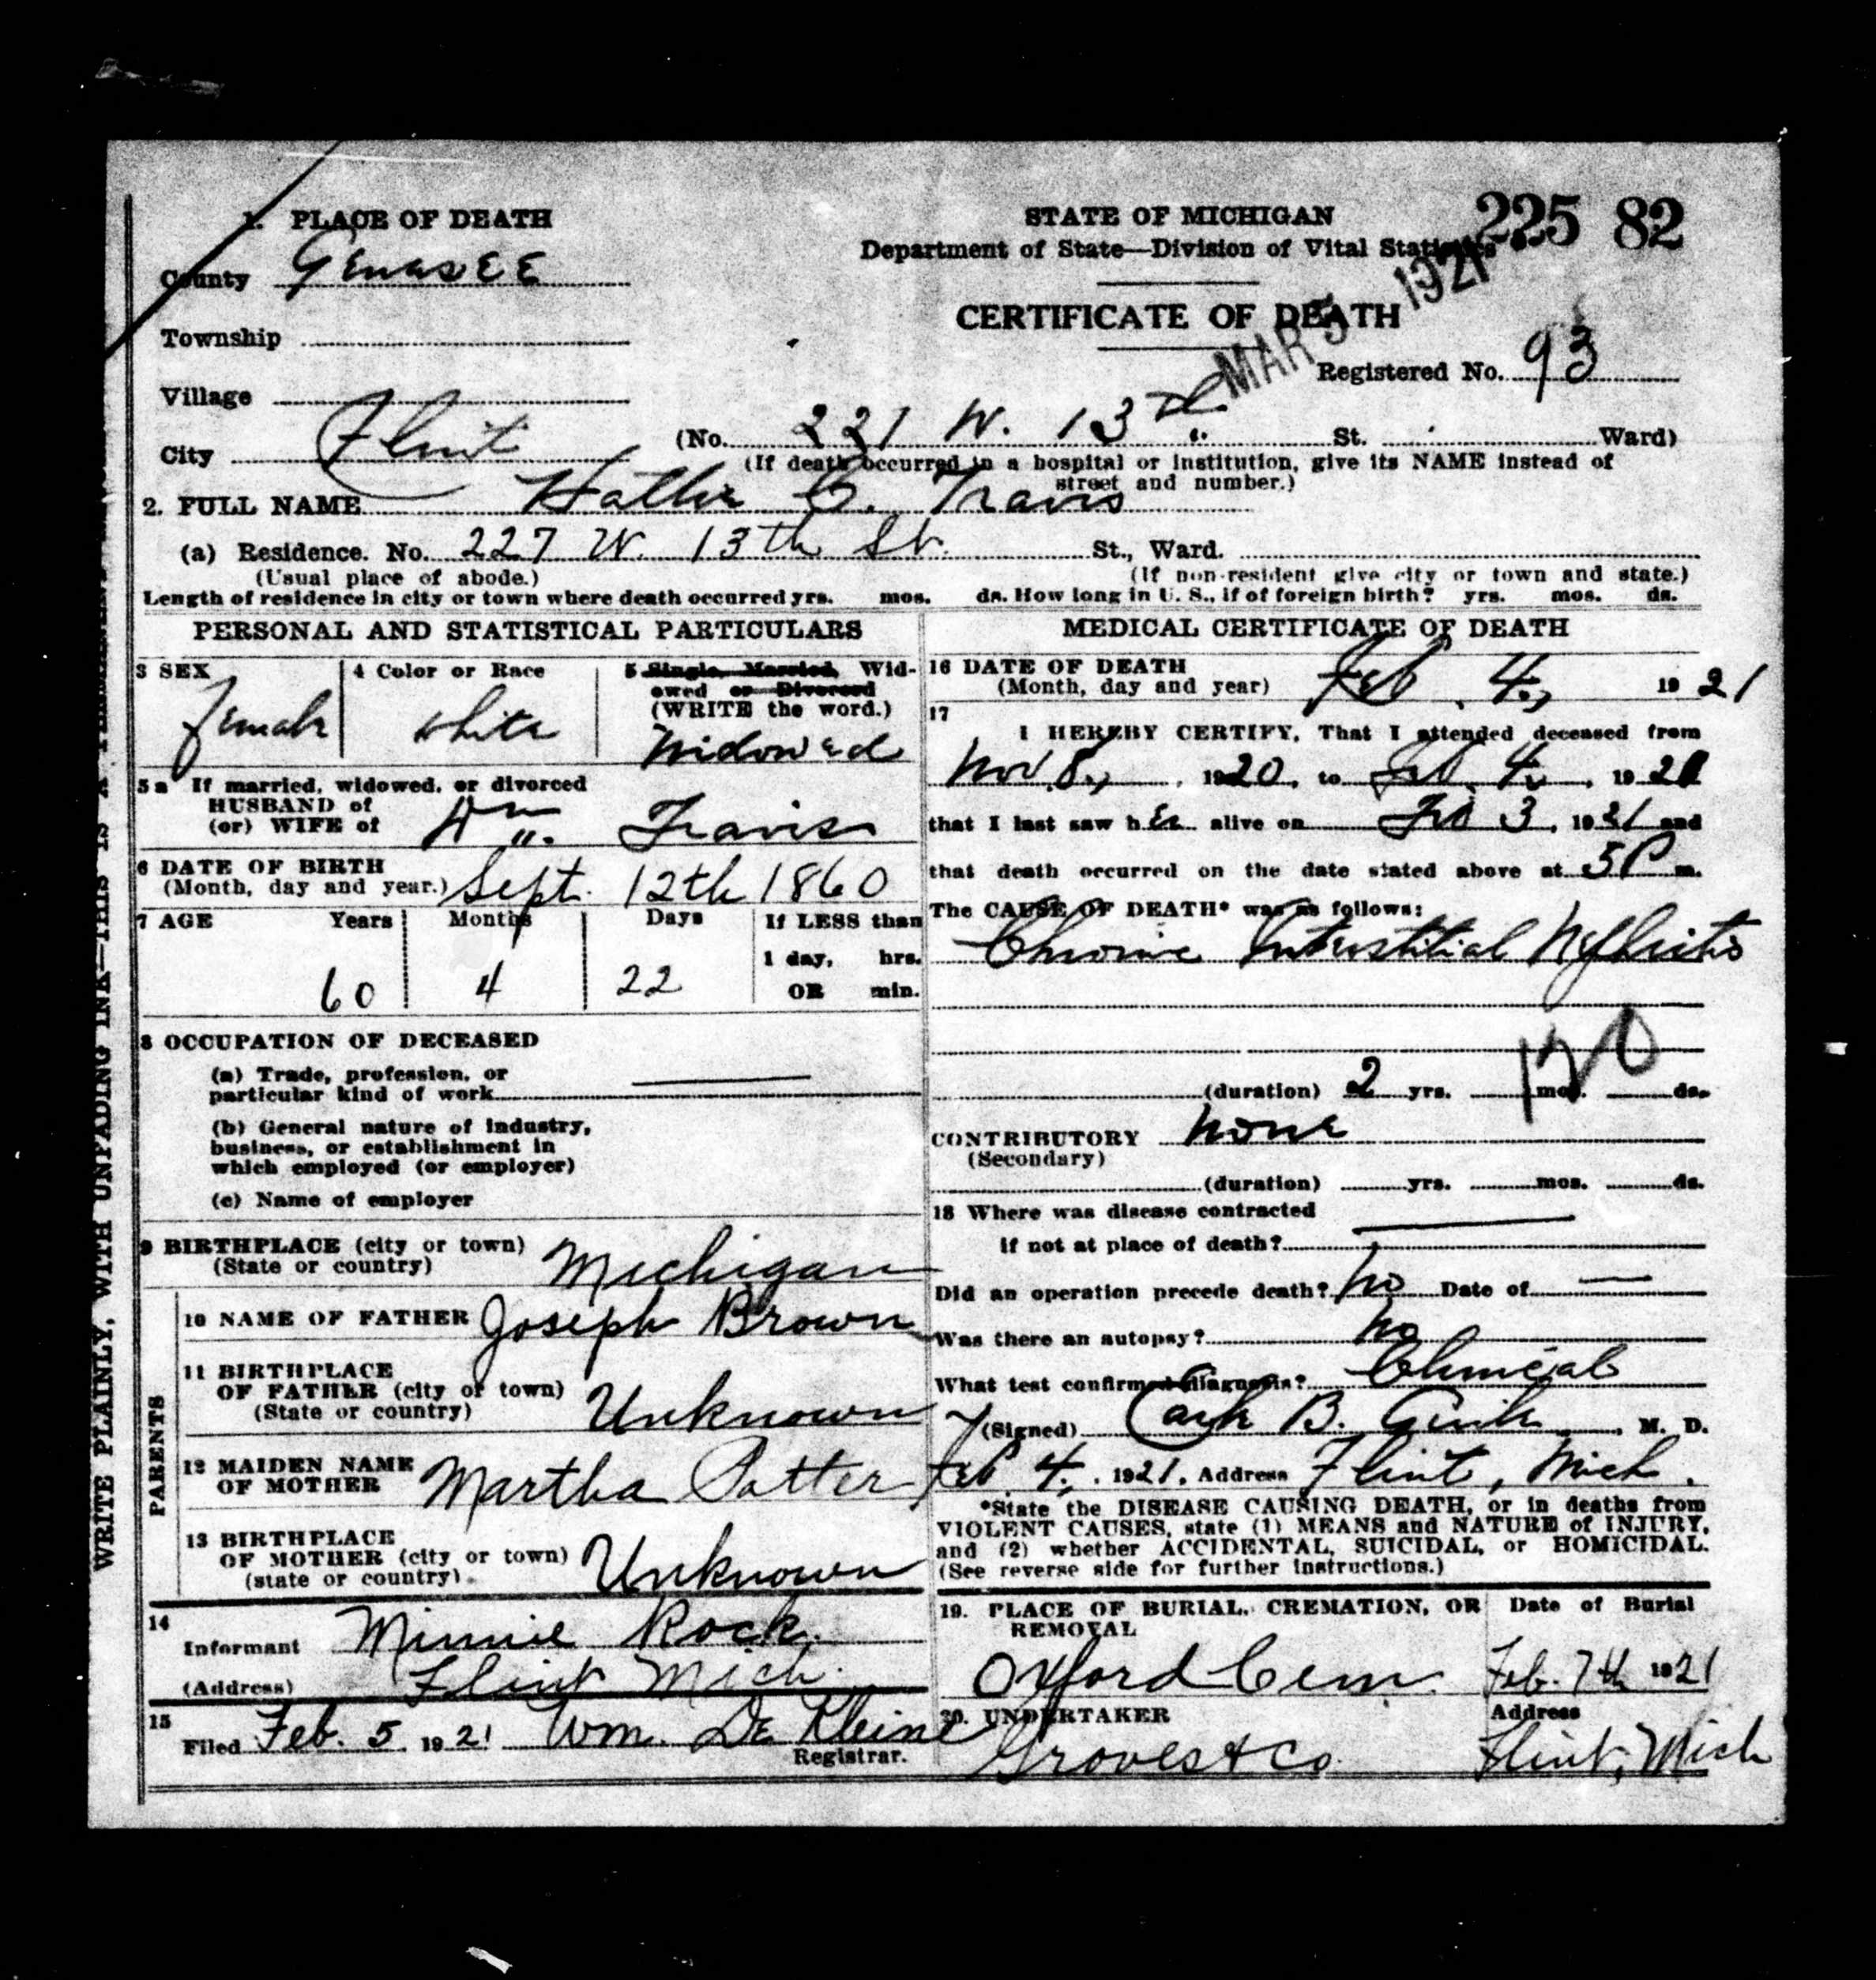 1. PLACE OF DEATH
County Genesee
Township
Village
City Flint
STATE OF MICHIGAN
Department of State—Division of Vital Statistics
225 82
CERTIFICATE OF DEATH
MAR 5 1921
Registered No. 93
(No. 221 W. 13th St. Ward)
(If death occurred in a hospital or institution, give its NAME instead of
street and number.)
2. FULL NAME Hattie C. Travis
(a) Residence. No. 227 W. 13th St. St., Ward.
(Usual place of abode.) (If non-resident give city or town and state.)
Length of residence in city or town where death occurred yrs. mos. ds. How long in U. S., if of foreign birth? yrs. mos. ds.
PERSONAL AND STATISTICAL PARTICULARS
3 SEX
Female
4 Color or Race
White
5 Single, Married, Wid-
owed or Divorced
(WRITE the word.)
Widowed
5a If married, widowed, or divorced
HUSBAND of
(or) WIFE of Wm. Travis
6 DATE OF BIRTH
(Month, day and year.) Sept. 12th 1860
7 AGE Years Months Days If LESS than
1 day, hrs.
60 4 22 OR min.
8 OCCUPATION OF DECEASED
(a) Trade, profession, or
particular kind of work
(b) General nature of industry,
business, or establishment in
which employed (or employer)
(c) Name of employer
9 BIRTHPLACE (city or town)
(State or country) Michigan
PARENTS
10 NAME OF FATHER Joseph Brown
11 BIRTHPLACE
OF FATHER (city or town)
(State or country) Unknown
12 MAIDEN NAME
OF MOTHER Martha Potter
13 BIRTHPLACE
OF MOTHER (city or town)
(state or country) Unknown
14
Informant Minnie Rock
(Address) Flint Mich.
15
Filed Feb. 5 1921 Wm. De Kleine
Registrar.
MEDICAL CERTIFICATE OF DEATH
16 DATE OF DEATH
(Month, day and year) Feb. 4, 1921
17
I HEREBY CERTIFY, That I attended deceased from
Nov. 8, 1920, to Feb. 4, 1921
that I last saw her alive on Feb 3, 1921 and
that death occurred on the date stated above at 5 P m.
The CAUSE OF DEATH* was as follows:
Chronic Interstitial Nephritis
120
(duration) 2 yrs. mos. ds.
CONTRIBUTORY None
(Secondary)
(duration) yrs. mos. ds.
18 Where was disease contracted
if not at place of death?
Did an operation precede death? No Date of —
Was there an autopsy? No
What test confirmed diagnosis? Clinical
(Signed) B. M. D.
Feb 4, 1921, Address Flint, Mich.
*State the DISEASE CAUSING DEATH, or in deaths from
VIOLENT CAUSES, state (1) MEANS and NATURE of INJURY,
and (2) whether ACCIDENTAL, SUICIDAL, or HOMICIDAL.
(See reverse side for further instructions.)
19. PLACE OF BURIAL, CREMATION, OR
REMOVAL
Oxford Cem.
Date of Burial
Feb. 7th 1921
20. UNDERTAKER
Groves & Co.
Address
Flint, Mich
WRITE PLAINLY, WITH UNFADING INK—THIS IS A